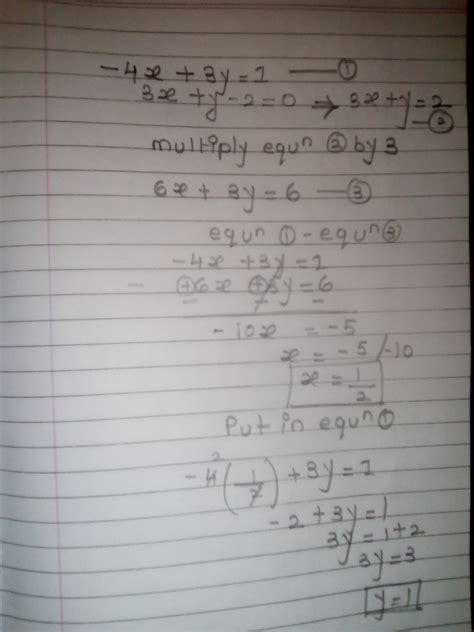 -4x + 3y = 1 —— ①
3x + y - 2 = 0 → 3x + y = 2 —②
multiply equⁿ ② by 3
6x + 3y = 6 —③
equⁿ ① - equⁿ ③
-4x + 3y = 1
- ⊕6x ⊕3y = 6
- - -
-10x = -5
x = -5/-10
x = 1/2
Put in equⁿ ①
-4² (1/2) + 3y = 1
-2 + 3y = 1
3y = 1+2
3y = 3
y = 1